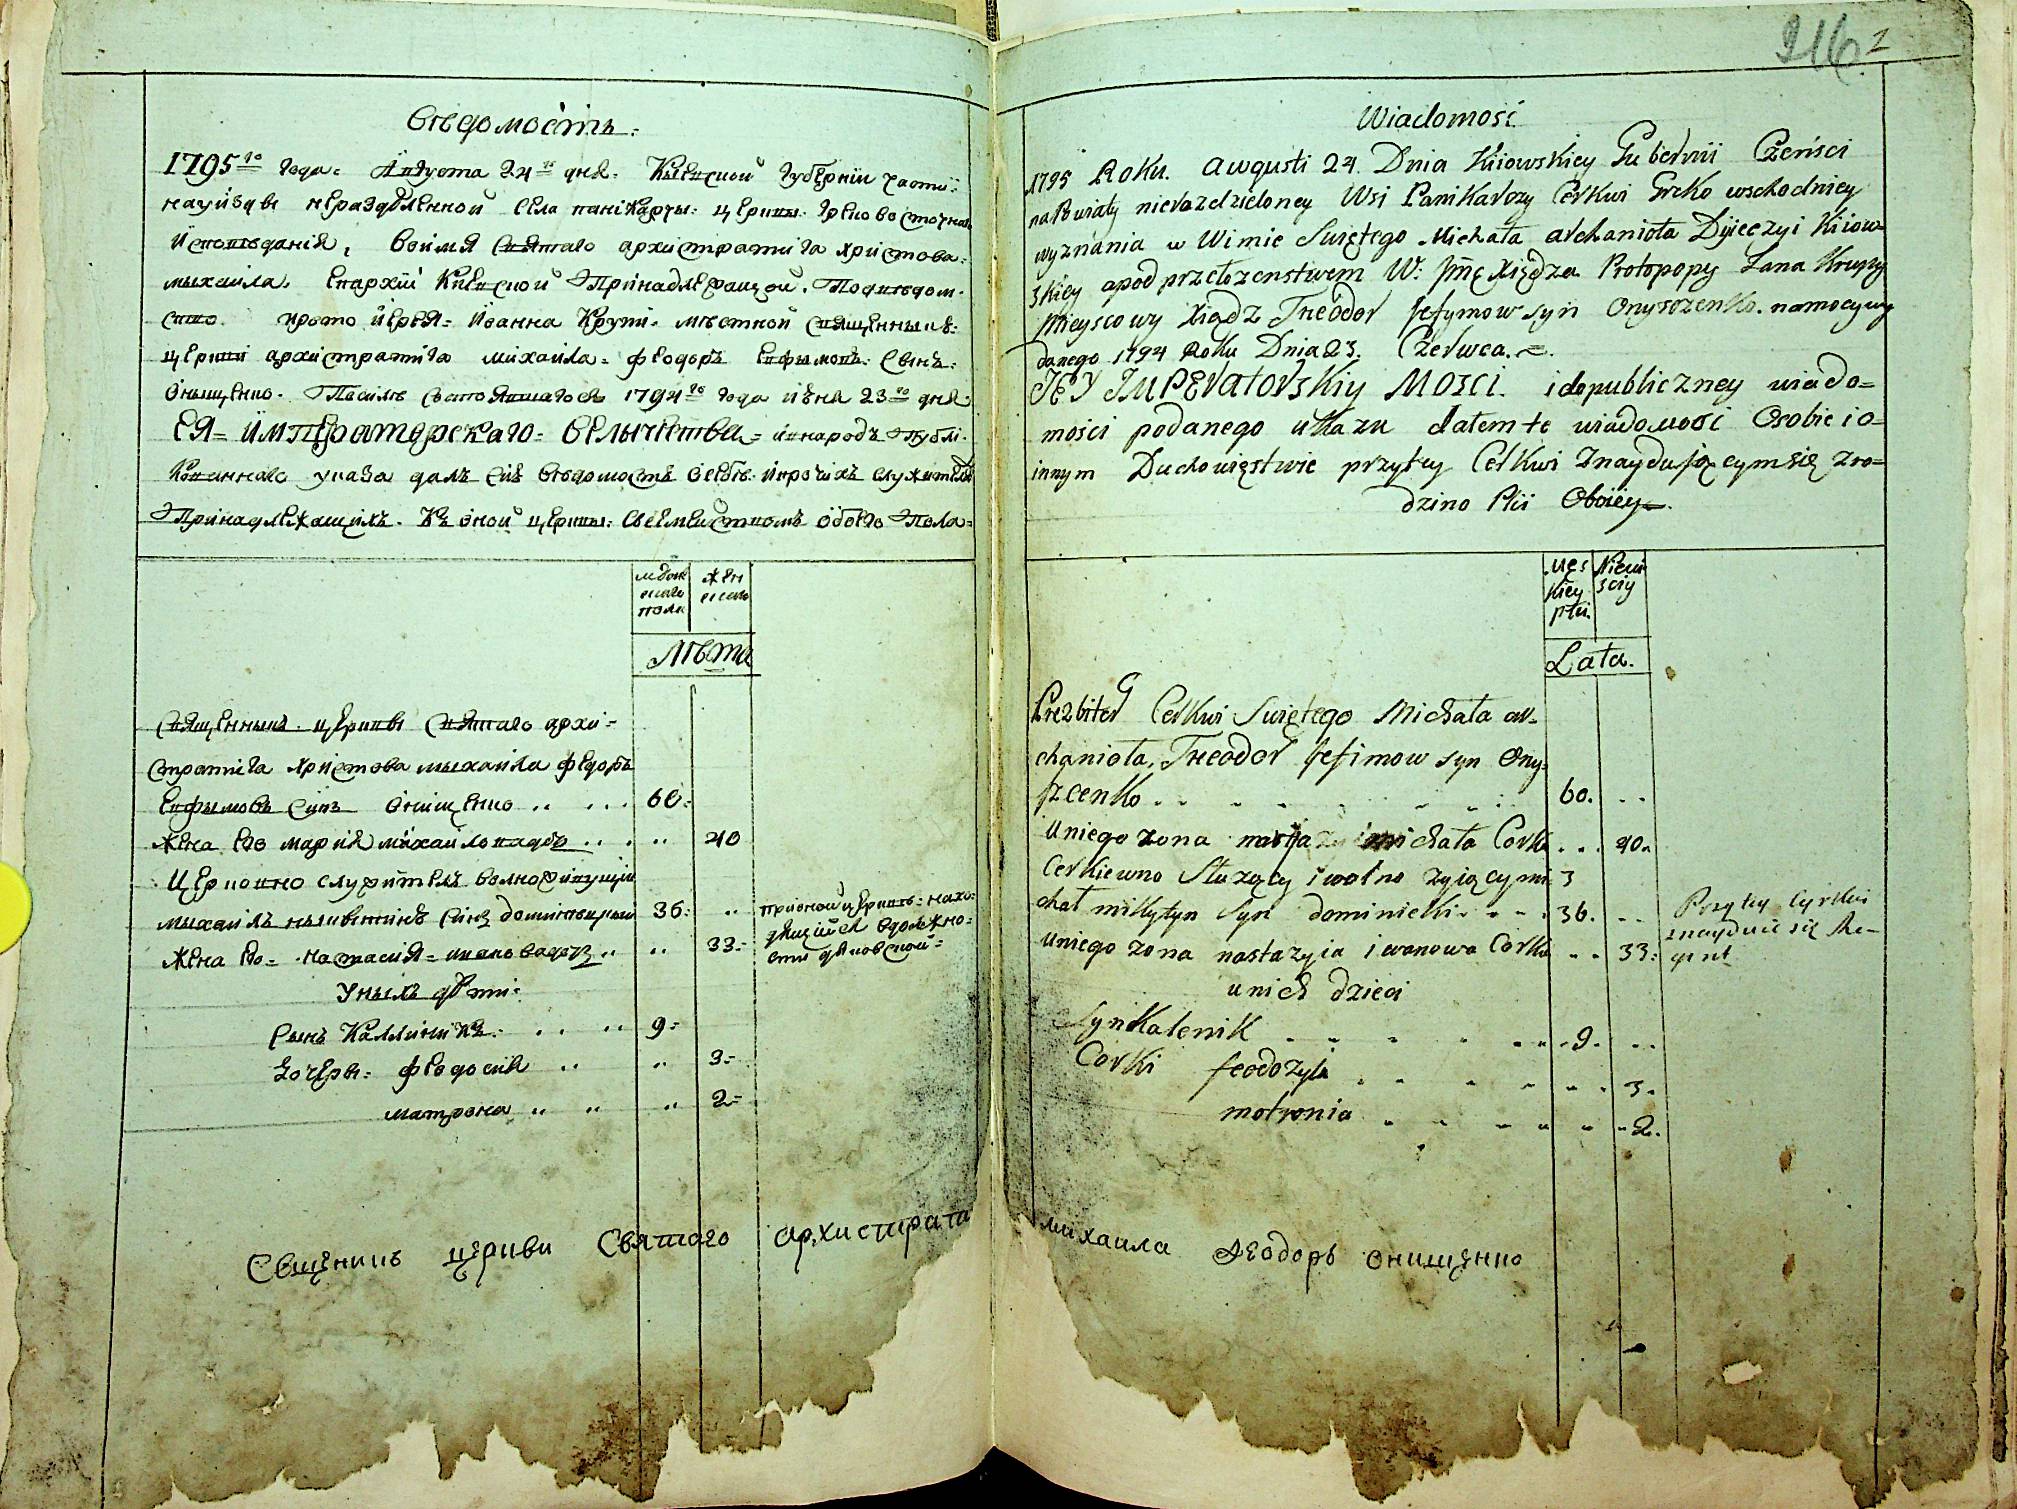 Вѣдомость
1795го года Августа 24го дня. Киевской Губернїи части
науѣздъ неразделенной села панікарчы церкви Греко восточнаго
Исповѣданія, Воимя Святаго архистратига христова
михаила. Епархїи Киевской Принадлежащой. Подвѣдом
ство прото Іерея Иоанна Крупи мѣстной священникъ
церкви архистратига михаила феодоръ Евфимовъ Сынъ
Онищенко. Посилѣ состоявшагося 1794го года июня 23го дня
ЕЯ ИМПЕраторскаго ВЕлычества инародъ Публі
кованнаго указа далъ сию вѣдомость осебѣ ипрочихъ служителяхъ
Принадлежащихъ. Къ оной церкви Своемействомъ обоего Пола
мужескаго пола
женскаго
Лѣта
Священникъ церкви Святаго архи
стратига христова михаила федоръ
Евфимовъ Синъ Онищенко 60
Жена его мария михайловадочъ 40
Церковно служитель волножівущій
михаилъ никитинъ синъ домінѣцкий 36
Жена его настасия ивановадочъ 33
Унихъ дѣти
Сынъ Каллиникъ 9
Дочери федосия 3
матрона 2
прионой церквѣ нахо
дящийся вдолжно
сти дяковской
Свщеникъ церкви Святаго архистрата
916 2
Wiadomosć
1795 Roku Awgusti 24 Dnia Kiiowskiey Gubernii Częńsci
naPowiaty nierozdzieloney Wsi Panikarczy Cerkwi Greko wschodniey
wyznania w Wimie Swiętego Michała archanioła Dyieczyi Kiiow
skiey apod przełozenstwem W: Jmę Xiędza Protopopy Jana Krupy
Mieyscowy Xiądz Theodor Jefymow syn Onyszczenko. namocy wy
danego 1794 Roku Dnia 23. Czerwca.
JEY IMPEratorskiy MOSCI. i dopubliczney wiado=
mości podanego ukazu dałem te wiadomość Osobie i o=
innym Duchowięstwie przytey Cerkwi Znayduiącymsię zro=
dzino Płci Oboiey
Męs kiey płci
Niewi sciy
Lata.
Prezbiter Cerkwi Swiętego Michała ar-
chanioła, Theodor Jefimow syn Ony=
szczenko 60.
Uniego zona marya michała Corka 40.
Cerkiewno Słuzący iwolno zyiący mi
chał mikytyn Syn dominicki 36.
Uniego zona nastazyia iwanowa Corka 33.
unich dzieci
Syn Kalenik 9.
Corki feodozyia 3.
motronia 2.
Przy tey Cyrkwi
znayduie się
михаила Феодоръ Онищенко